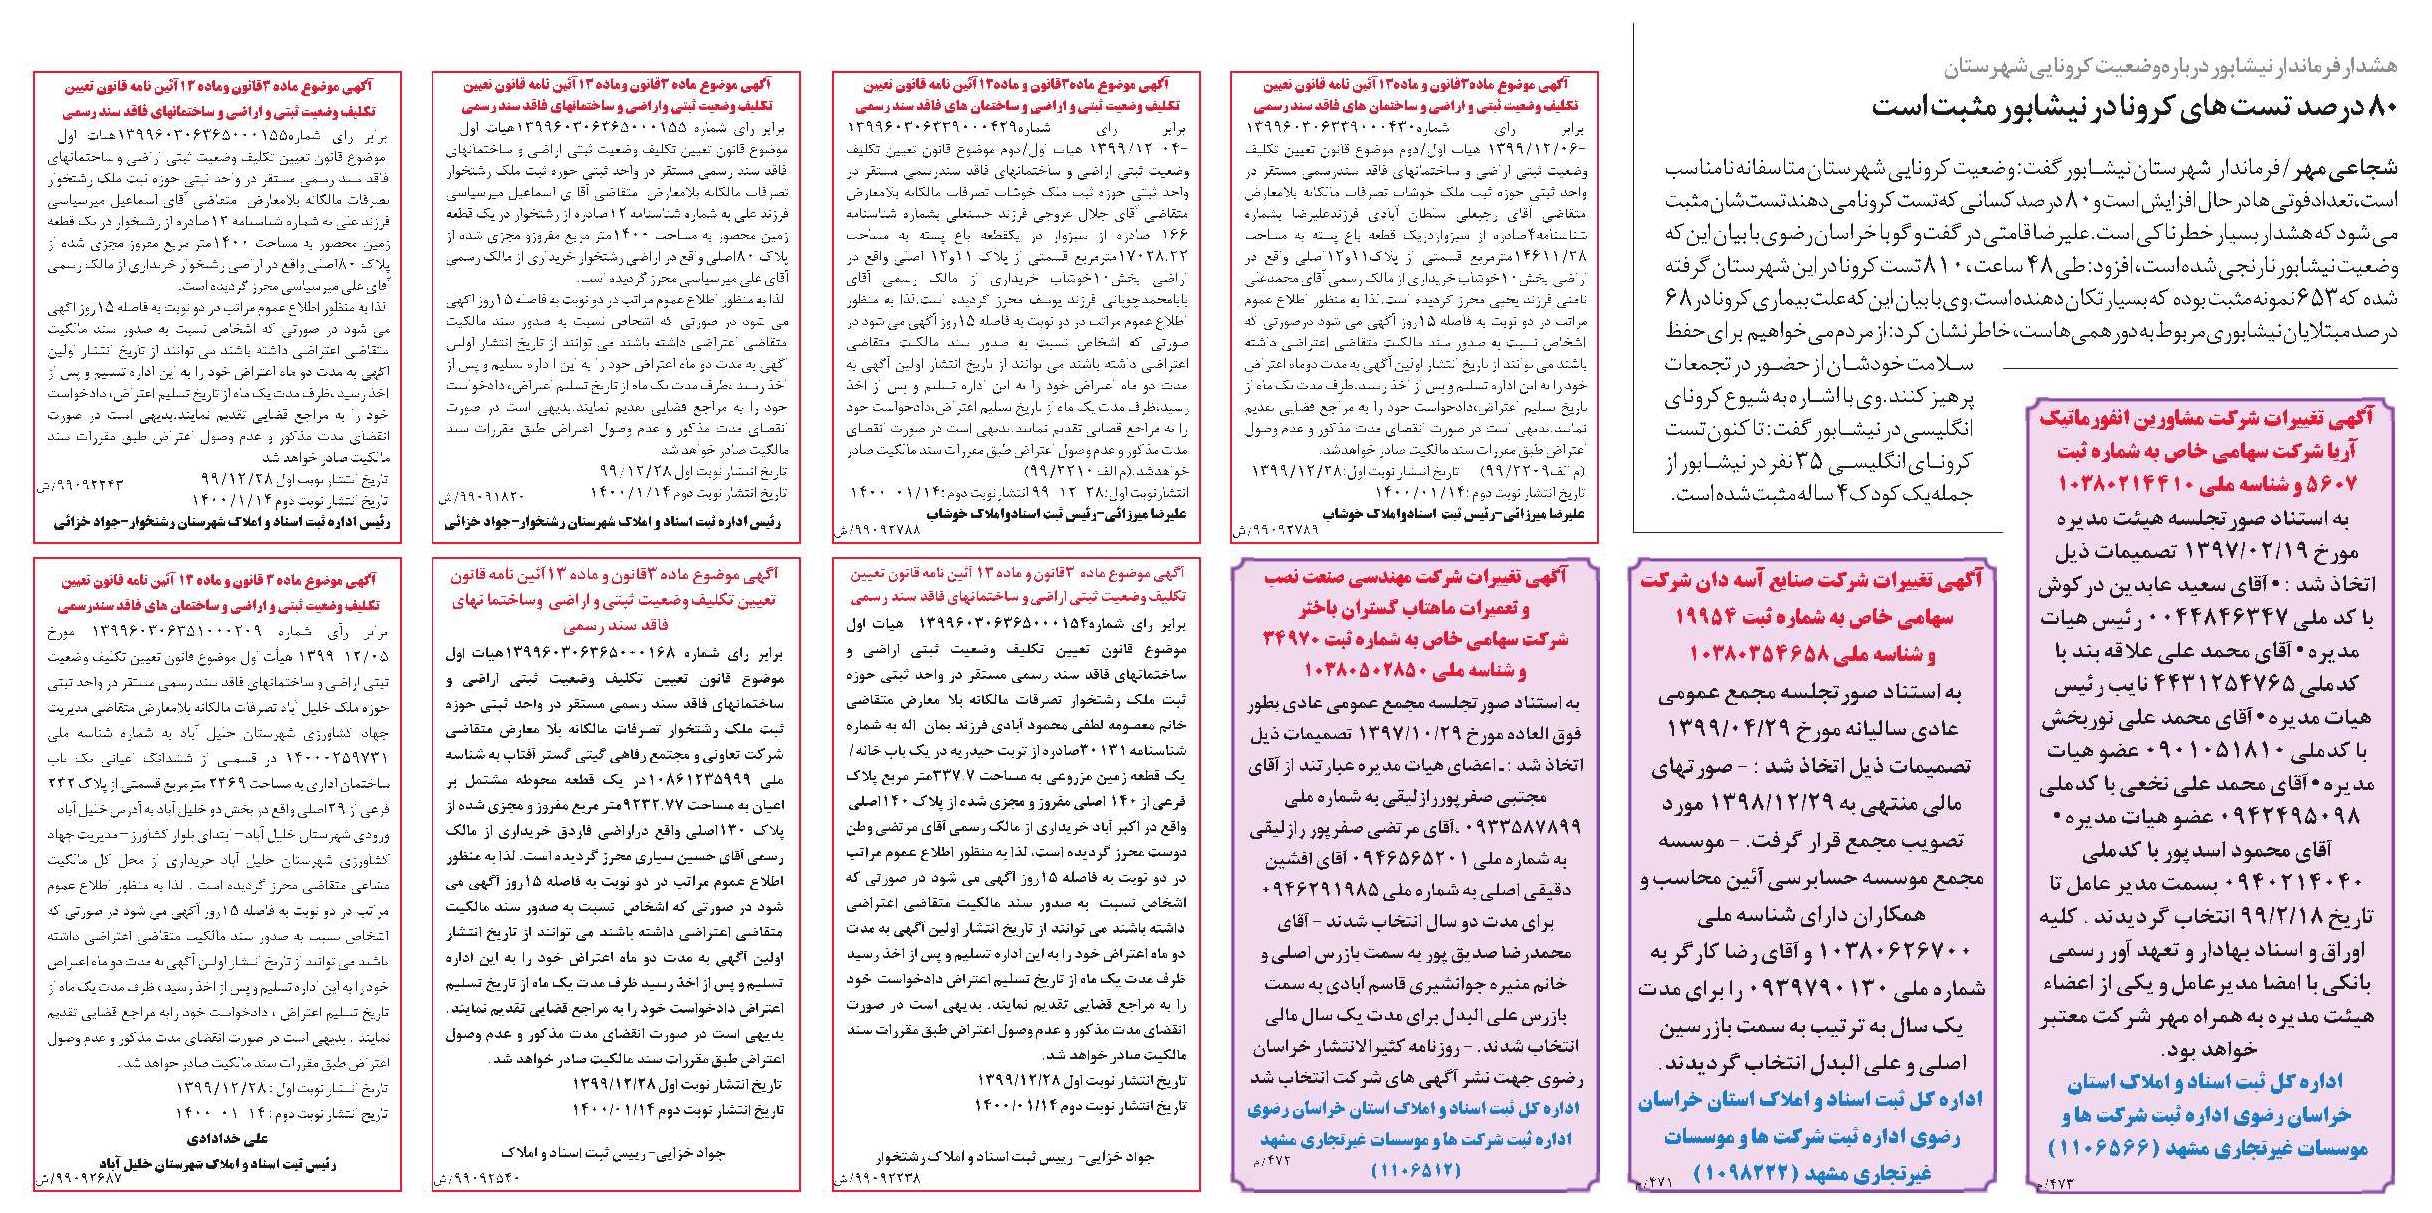 هشدار فرماندار نیشابور درباره وضعیت کرونایی شهرستان
۸۰ درصد تست های کرونا در نیشابور مثبت است
شجاعی مهر / فرماندار شهرستان نیشابور گفت: وضعیت کرونایی شهرستان متاسفانه نامناسب
است، تعداد فوتی ها در حال افزایش است و ۸۰ درصد کسانی که تست کرونا می دهند تست شان مثبت
می شود که هشدار بسیار خطرناکی است. علیرضا قامتی در گفت و گو با خراسان رضوی با بیان این که
وضعیت نیشابور نارنجی شده است، افزود: طی ۴۸ ساعت، ۸۱۰ تست کرونا در این شهرستان گرفته
شده که ۶۵۳ نمونه مثبت بوده که بسیار تکان دهنده است. وی با بیان این که علت بیماری کرونا در ۶۸
درصد مبتلایان نیشابوری مربوط به دورهمی هاست، خاطرنشان کرد: از مردم می خواهیم برای حفظ
سلامت خودشان از حضور در تجمعات
پرهیز کنند. وی با اشاره به شیوع کرونای
انگلیسی در نیشابور گفت: تا کنون تست
کرونای انگلیسی ۳۵ نفر در نیشابور از
جمله یک کودک ۴ ساله مثبت شده است.
آگهی تغییرات شرکت مشاورین انفورماتیک
آریا شرکت سهامی خاص به شماره ثبت
۵۶۰۷ و شناسه ملی ۱۰۳۸۰۲۱۴۴۱۰
به استناد صورتجلسه هیئت مدیره
مورخ ۱۳۹۷/۰۲/۱۹ تصمیمات ذیل
اتخاذ شد : •آقای سعید عابدین درکوش
با کد ملی ۰۰۴۴۸۴۶۳۴۷ رئیس هیات
مدیره •آقای محمد علی علاقه بند با
کدملی ۴۴۳۱۲۵۴۷۶۵ نایب رئیس
هیات مدیره •آقای محمد علی نوربخش
با کدملی ۰۹۰۱۰۵۱۸۱۰ عضو هیات
مدیره •آقای محمد علی نخعی با کدملی
۰۹۴۲۴۹۵۰۹۸ عضو هیات مدیره •
آقای محمود اسدپور با کدملی
۰۹۴۰۲۱۴۰۴۰ بسمت مدیر عامل تا
تاریخ ۹۹/۲/۱۸ انتخاب گردیدند . کلیه
اوراق و اسناد بهادار و تعهد آور رسمی
بانکی با امضا مدیرعامل و یکی از اعضاء
هیئت مدیره به همراه مهر شرکت معتبر
خواهد بود.
اداره کل ثبت اسناد و املاک استان
خراسان رضوی اداره ثبت شرکت ها و
موسسات غیرتجاری مشهد (۱۱۰۶۵۶۶)
۴۷۳/م
آگهی تغییرات شرکت صنایع آسه دان شرکت
سهامی خاص به شماره ثبت ۱۹۹۵۴
و شناسه ملی ۱۰۳۸۰۳۵۴۶۵۸
به استناد صورتجلسه مجمع عمومی
عادی سالیانه مورخ ۱۳۹۹/۰۴/۲۹
تصمیمات ذیل اتخاذ شد : - صورتهای
مالی منتهی به ۱۳۹۸/۱۲/۲۹ مورد
تصویب مجمع قرار گرفت. - موسسه
مجمع موسسه حسابرسی آئین محاسب و
همکاران دارای شناسه ملی
۱۰۳۸۰۶۲۶۷۰۰ و آقای رضا کارگر به
شماره ملی ۰۹۳۹۷۹۰۱۳۰ را برای مدت
یک سال به ترتیب به سمت بازرسین
اصلی و علی البدل انتخاب گردیدند.
اداره کل ثبت اسناد و املاک استان خراسان
رضوی اداره ثبت شرکت ها و موسسات
غیرتجاری مشهد (۱۰۹۸۲۲۲)
۴۷۱/م
آگهی موضوع ماده۳قانون و ماده۱۳ آئین نامه قانون تعیین
تکلیف وضعیت ثبتی و اراضی و ساختمان های فاقد سند رسمی
برابر رای شماره۱۳۹۹۶۰۳۰۶۳۳۹۰۰۰۴۳۰
-۱۳۹۹/۱۲/۰۶ هیات اول/دوم موضوع قانون تعیین تکلیف
وضعیت ثبتی اراضی و ساختمانهای فاقد سندرسمی مستقر در
واحد ثبتی حوزه ثبت ملک خوشاب تصرفات مالکانه بلامعارض
متقاضی آقای رجبعلی سلطان آبادی فرزندعلیرضا بشماره
شناسنامه۴صادره از سبزواردریک قطعه باغ پسته به مساحت
۱۴۶۱۱/۲۸مترمربع قسمتی از پلاک۱۱و۱۲اصلی واقع در
اراضی بخش۱۰خوشاب خریداری از مالک رسمی آقای محمدعلی
ثامنی فرزند یحیی محرز گردیده است.لذا به منظور اطلاع عموم
مراتب در دو نوبت به فاصله ۱۵روز آگهی می شود درصورتی که
اشخاص نسبت به صدور سند مالکیت متقاضی اعتراضی داشته
باشند می توانند از تاریخ انتشار اولین آگهی به مدت دوماه اعتراض
خود را به این اداره تسلیم و پس از اخذ رسید.ظرف مدت یک ماه از
تاریخ تسلیم اعتراض،دادخواست خود را به مراجع قضایی تقدیم
نمایند.بدیهی است در صورت انقضای مدت مذکور و عدم وصول
اعتراض طبق مقررات سند مالکیت صادر خواهدشد.
(م الف۹۹/۲۲۰۹) تاریخ انتشار نوبت اول:۱۳۹۹/۱۲/۲۸
تاریخ انتشار نوبت دوم :۱۴۰۰/۰۱/۱۴
علیرضا میرزائی-رئیس ثبت اسنادواملاک خوشاب
۹۹۰۹۲۷۸۹/ش
آگهی تغییرات شرکت مهندسی صنعت نصب
و تعمیرات ماهتاب گستران باختر
شرکت سهامی خاص به شماره ثبت ۳۴۹۷۰
و شناسه ملی ۱۰۳۸۰۵۰۲۸۵۰
به استناد صورتجلسه مجمع عمومی عادی بطور
فوق العاده مورخ ۱۳۹۷/۱۰/۲۹ تصمیمات ذیل
اتخاذ شد : ـ اعضای هیات مدیره عبارتند از آقای
مجتبی صفرپوررازلیقی به شماره ملی
۰۹۳۳۵۸۷۸۹۹ .آقای مرتضی صفرپور رازلیقی
به شماره ملی ۰۹۴۶۵۶۵۲۰۱ آقای افشین
دقیقی اصلی به شماره ملی ۰۹۴۶۲۹۱۹۸۵
برای مدت دو سال انتخاب شدند - آقای
محمدرضا صدیق پور به سمت بازرس اصلی و
خانم منیره جوانشیری قاسم آبادی به سمت
بازرس علی البدل برای مدت یک سال مالی
انتخاب شدند. - روزنامه کثیرالانتشار خراسان
رضوی جهت نشر آگهی های شرکت انتخاب شد
اداره کل ثبت اسناد و املاک استان خراسان رضوی
اداره ثبت شرکت ها و موسسات غیرتجاری مشهد
(۱۱۰۶۵۱۲)
۴۷۲/م
آگهی موضوع ماده۳قانون و ماده۱۳ آئین نامه قانون تعیین
تکلیف وضعیت ثبتی و اراضی و ساختمان های فاقد سند رسمی
برابر رای شماره۱۳۹۹۶۰۳۰۶۳۳۹۰۰۰۴۲۹
-۰۴ ۱۳۹۹/۱۲ هیات اول/دوم موضوع قانون تعیین تکلیف
وضعیت ثبتی اراضی و ساختمانهای فاقد سندرسمی مستقر در
واحد ثبتی حوزه ثبت ملک خوشاب تصرفات مالکانه بلامعارض
متقاضی آقای جلال عروجی فرزند حسنعلی بشماره شناسنامه
۱۶۶ صادره از سبزوار در یکقطعه باغ پسته به مساحت
۱۷۰۲۸.۲۲مترمربع قسمتی از پلاک ۱۱و۱۲ اصلی واقع در
اراضی بخش۱۰خوشاب خریداری از مالک رسمی آقای
بابامحمدچوپانی فرزند یوسف محرز گردیده است.لذا به منظور
اطلاع عموم مراتب در دو نوبت به فاصله ۱۵روز آگهی می شود در
صورتی که اشخاص نسبت به صدور سند مالکیت متقاضی
اعتراضی داشته باشند می توانند از تاریخ انتشار اولین آگهی به
مدت دو ماه اعتراض خود را به این اداره تسلیم و پس از اخذ
رسید،ظرف مدت یک ماه از تاریخ تسلیم اعتراض،دادخواست خود
را به مراجع قضایی تقدیم نمایند.بدیهی است در صورت انقضای
مدت مذکور و عدم وصول اعتراض طبق مقررات سند مالکیت صادر
خواهدشد.(م الف ۹۹/۲۲۱۰)
انتشارنوبت اول:۲۸ ۱۲ ۹۹ انتشارنوبت دوم :۰۱/۱۴ ۱۴۰۰
علیرضا میرزائی-رئیس ثبت اسنادواملاک خوشاب
۹۹۰۹۲۷۸۸/ش
آگهی موضوع ماده ۳قانون و ماده ۱۳ آئین نامه قانون تعیین
تکلیف وضعیت ثبتی اراضی و ساختمانهای فاقد سند رسمی
برابر رای شماره۱۳۹۹۶۰۳۰۶۳۶۵۰۰۰۱۵۴ هیات اول
موضوع قانون تعیین تکلیف وضعیت ثبتی اراضی و
ساختمانهای فاقد سند رسمی مستقر در واحد ثبتی حوزه
ثبت ملک رشتخوار تصرفات مالکانه بلا معارض متقاضی
خانم معصومه لطفی محمود آبادی فرزند یمان اله به شماره
شناسنامه ۳۰۱۳۱صادره از تربت حیدریه در یک باب خانه/
یک قطعه زمین مزروعی به مساحت ۳۳۷.۷متر مربع پلاک
فرعی از ۱۴۰ اصلی مفروز و مجزی شده از پلاک ۱۴۰اصلی
واقع در اکبر آباد خریداری از مالک رسمی آقای مرتضی وطن
دوست محرز گردیده است، لذا به منظور اطلاع عموم مراتب
در دو نوبت به فاصله ۱۵روز آگهی می شود در صورتی که
اشخاص نسبت به صدور سند مالکیت متقاضی اعتراضی
داشته باشند می توانند از تاریخ انتشار اولین آگهی به مدت
دو ماه اعتراض خود را به این اداره تسلیم و پس از اخذ رسید
ظرف مدت یک ماه از تاریخ تسلیم اعتراض دادخواست خود
را به مراجع قضایی تقدیم نمایند. بدیهی است در صورت
انقضای مدت مذکور و عدم وصول اعتراض طبق مقررات سند
مالکیت صادر خواهد شد.
تاریخ انتشار نوبت اول ۱۳۹۹/۱۲/۲۸
تاریخ انتشار نوبت دوم ۱۴۰۰/۰۱/۱۴
جواد خزایی- رییس ثبت اسناد و املاک رشتخوار
۹۹۰۹۲۲۳۸/ش
آگهی موضوع ماده ۳قانون وماده ۱۳ آئین نامه قانون تعیین
تکلیف وضعیت ثبتی واراضی و ساختمانهای فاقد سند رسمی
برابر رای شماره ۱۳۹۹۶۰۳۰۶۳۶۵۰۰۰۱۵۵هیات اول
موضوع قانون تعیین تکلیف وضعیت ثبتی اراضی و ساختمانهای
فاقد سند رسمی مستقر در واحد ثبتی حوزه ثبت ملک رشتخوار
تصرفات مالکانه بلامعارض متقاضی آقا ی اسماعیل میرسیاسی
فرزند علی به شماره شناسنامه ۱۲صادره از رشتخوار در یک قطعه
زمین محصور به مساحت ۱۴۰۰متر مربع مفروزو مجزی شده از
پلاک ۸۰اصلی واقع در اراضی رشتخوار خریداری از مالک رسمی
آقای علی میرسیاسی محرز گردیده است.
لذا به منظور اطلاع عموم مراتب در دو نوبت به فاصله ۱۵روز آگهی
می شود در صورتی که اشخاص نسبت به صدور سند مالکیت
متقاضی اعتراضی داشته باشند می توانند از تاریخ انتشار اولین
آگهی به مدت دو ماه اعتراض خود را به این اداره تسلیم و پس از
اخذ رسید ،ظرف مدت یک ماه از تاریخ تسلیم اعتراض، دادخواست
خود را به مراجع قضایی تقدیم نمایند.بدیهی است در صورت
انقضای مدت مذکور و عدم وصول اعتراض طبق مقررات سند
مالکیت صادر خواهد شد
تاریخ انتشار نوبت اول ۹۹/۱۲/۲۸
تاریخ انتشار نوبت دوم ۱۴۰۰/۱/۱۴
۹۹۰۹۱۸۲۰/ش
رئیس اداره ثبت اسناد و املاک شهرستان رشتخوار-جواد خزائی
آگهی موضوع ماده ۳قانون و ماده ۱۳آئین نامه قانون
تعیین تکلیف وضعیت ثبتی و اراضی وساختما نهای
فاقد سند رسمی
برابر رای شماره ۱۳۹۹۶۰۳۰۶۳۶۵۰۰۰۱۶۸هیات اول
موضوع قانون تعیین تکلیف وضعیت ثبتی اراضی و
ساختمانهای فاقد سند رسمی مستقر در واحد ثبتی حوزه
ثبت ملک رشتخوار تصرفات مالکانه بلا معارض متقاضی
شرکت تعاونی و مجتمع رفاهی گیتی گستر آفتاب به شناسه
ملی ۱۰۸۶۱۲۳۵۹۹۹در یک قطعه محوطه مشتمل بر
اعیان به مساحت ۹۲۳۲.۷۷متر مربع مفروز و مجزی شده از
پلاک ۱۳۰اصلی واقع دراراضی فاردق خریداری از مالک
رسمی آقای حسین سیاری محرز گردیده است. لذا به منظور
اطلاع عموم مراتب در دو نوبت به فاصله ۱۵روز آگهی می
شود در صورتی که اشخاص نسبت به صدور سند مالکیت
متقاضی اعتراضی داشته باشند می توانند از تاریخ انتشار
اولین آگهی به مدت دو ماه اعتراض خود را به این اداره
تسلیم و پس از اخذ رسید ظرف مدت یک ماه از تاریخ تسلیم
اعتراض دادخواست خود را به مراجع قضایی تقدیم نمایند.
بدیهی است در صورت انقضای مدت مذکور و عدم وصول
اعتراض طبق مقررات سند مالکیت صادر خواهد شد.
تاریخ انتشار نوبت اول ۱۳۹۹/۱۲/۲۸
تاریخ انتشار نوبت دوم ۱۴۰۰/۰۱/۱۴
جواد خزایی- رییس ثبت اسناد و املاک
۹۹۰۹۲۵۴۰/ش
آگهی موضوع ماده ۳قانون وماده ۱۳ آئین نامه قانون تعیین
تکلیف وضعیت ثبتی و اراضی و ساختمانهای فاقد سند رسمی
برابر رای شماره۱۳۹۹۶۰۳۰۶۳۶۵۰۰۰۱۵۵هیات اول
موضوع قانون تعیین تکلیف وضعیت ثبتی اراضی و ساختمانهای
فاقد سند رسمی مستقر در واحد ثبتی حوزه ثبت ملک رشتخوار
تصرفات مالکانه بلامعارض متقاضی آقای اسماعیل میرسیاسی
فرزند علی به شماره شناسنامه ۱۲صادره از رشتخوار در یک قطعه
زمین محصور به مساحت ۱۴۰۰متر مربع مفروز مجزی شده از
پلاک ۸۰اصلی واقع در اراضی رشتخوار خریداری از مالک رسمی
آقای علی میرسیاسی محرز گردیده است.
لذا به منظور اطلاع عموم مراتب در دو نوبت به فاصله ۱۵روز آگهی
می شود در صورتی که اشخاص نسبت به صدور سند مالکیت
متقاضی اعتراضی داشته باشند می توانند از تاریخ انتشار اولین
آگهی به مدت دو ماه اعتراض خود را به این اداره تسلیم و پس از
اخذ رسید ،ظرف مدت یک ماه از تاریخ تسلیم اعتراض، دادخواست
خود را به مراجع قضایی تقدیم نمایند.بدیهی است در صورت
انقضای مدت مذکور و عدم وصول اعتراض طبق مقررات سند
مالکیت صادر خواهد شد
تاریخ انتشار نوبت اول ۹۹/۱۲/۲۸
تاریخ انتشار نوبت دوم ۱۴۰۰/۱/۱۴
۹۹۰۹۲۲۴۳/ش
رئیس اداره ثبت اسناد و املاک شهرستان رشتخوار-جواد خزائی
آگهی موضوع ماده ۳ قانون و ماده ۱۳ آئین نامه قانون تعیین
تکلیف وضعیت ثبتی و اراضی و ساختمان های فاقد سندرسمی
برابر رأی شماره ۱۳۹۹۶۰۳۰۶۳۵۱۰۰۰۲۰۹ مورخ
۱۲/۰۵ ۱۳۹۹ هیأت اول موضوع قانون تعیین تکلیف وضعیت
ثبتی اراضی و ساختمانهای فاقد سند رسمی مستقر در واحد ثبتی
حوزه ملک خلیل آباد تصرفات مالکانه بلامعارض متقاضی مدیریت
جهاد کشاورزی شهرستان خلیل آباد به شماره شناسه ملی
۱۴۰۰۰۲۵۹۷۳۱ در قسمتی از ششدانگ اعیانی یک باب
ساختمان اداری به مساحت ۲۳۶۹ مترمربع قسمتی از پلاک ۲۴۲
فرعی از ۲۹اصلی واقع در بخش دو خلیل آباد به آدرس خلیل آباد
ورودی شهرستان خلیل آباد- ابتدای بلوار کشاورز- مدیریت جهاد
کشاورزی شهرستان خلیل آباد خریداری از محل کل مالکیت
مشاعی متقاضی محرز گردیده است . لذا به منظور اطلاع عموم
مراتب در دو نوبت به فاصله ۱۵روز آگهی می شود در صورتی که
اشخاص نسبت به صدور سند مالکیت متقاضی اعتراضی داشته
باشند می توانند از تاریخ انتشار اولین آگهی به مدت دو ماه اعتراض
خود را به این اداره تسلیم و پس از اخذ رسید ، ظرف مدت یک ماه از
تاریخ تسلیم اعتراض ، دادخواست خود رابه مراجع قضایی تقدیم
نمایند . بدیهی است در صورت انقضای مدت مذکور و عدم وصول
اعتراض طبق مقررات سند مالکیت صادر خواهد شد .
تاریخ انتشار نوبت اول : ۱۳۹۹/۱۲/۲۸
تاریخ انتشار نوبت دوم : ۱۴ ۰۱ ۱۴۰۰
علی خدادادی
رئیس ثبت اسناد و املاک شهرستان خلیل آباد
۹۹۰۹۲۶۸۷/ش